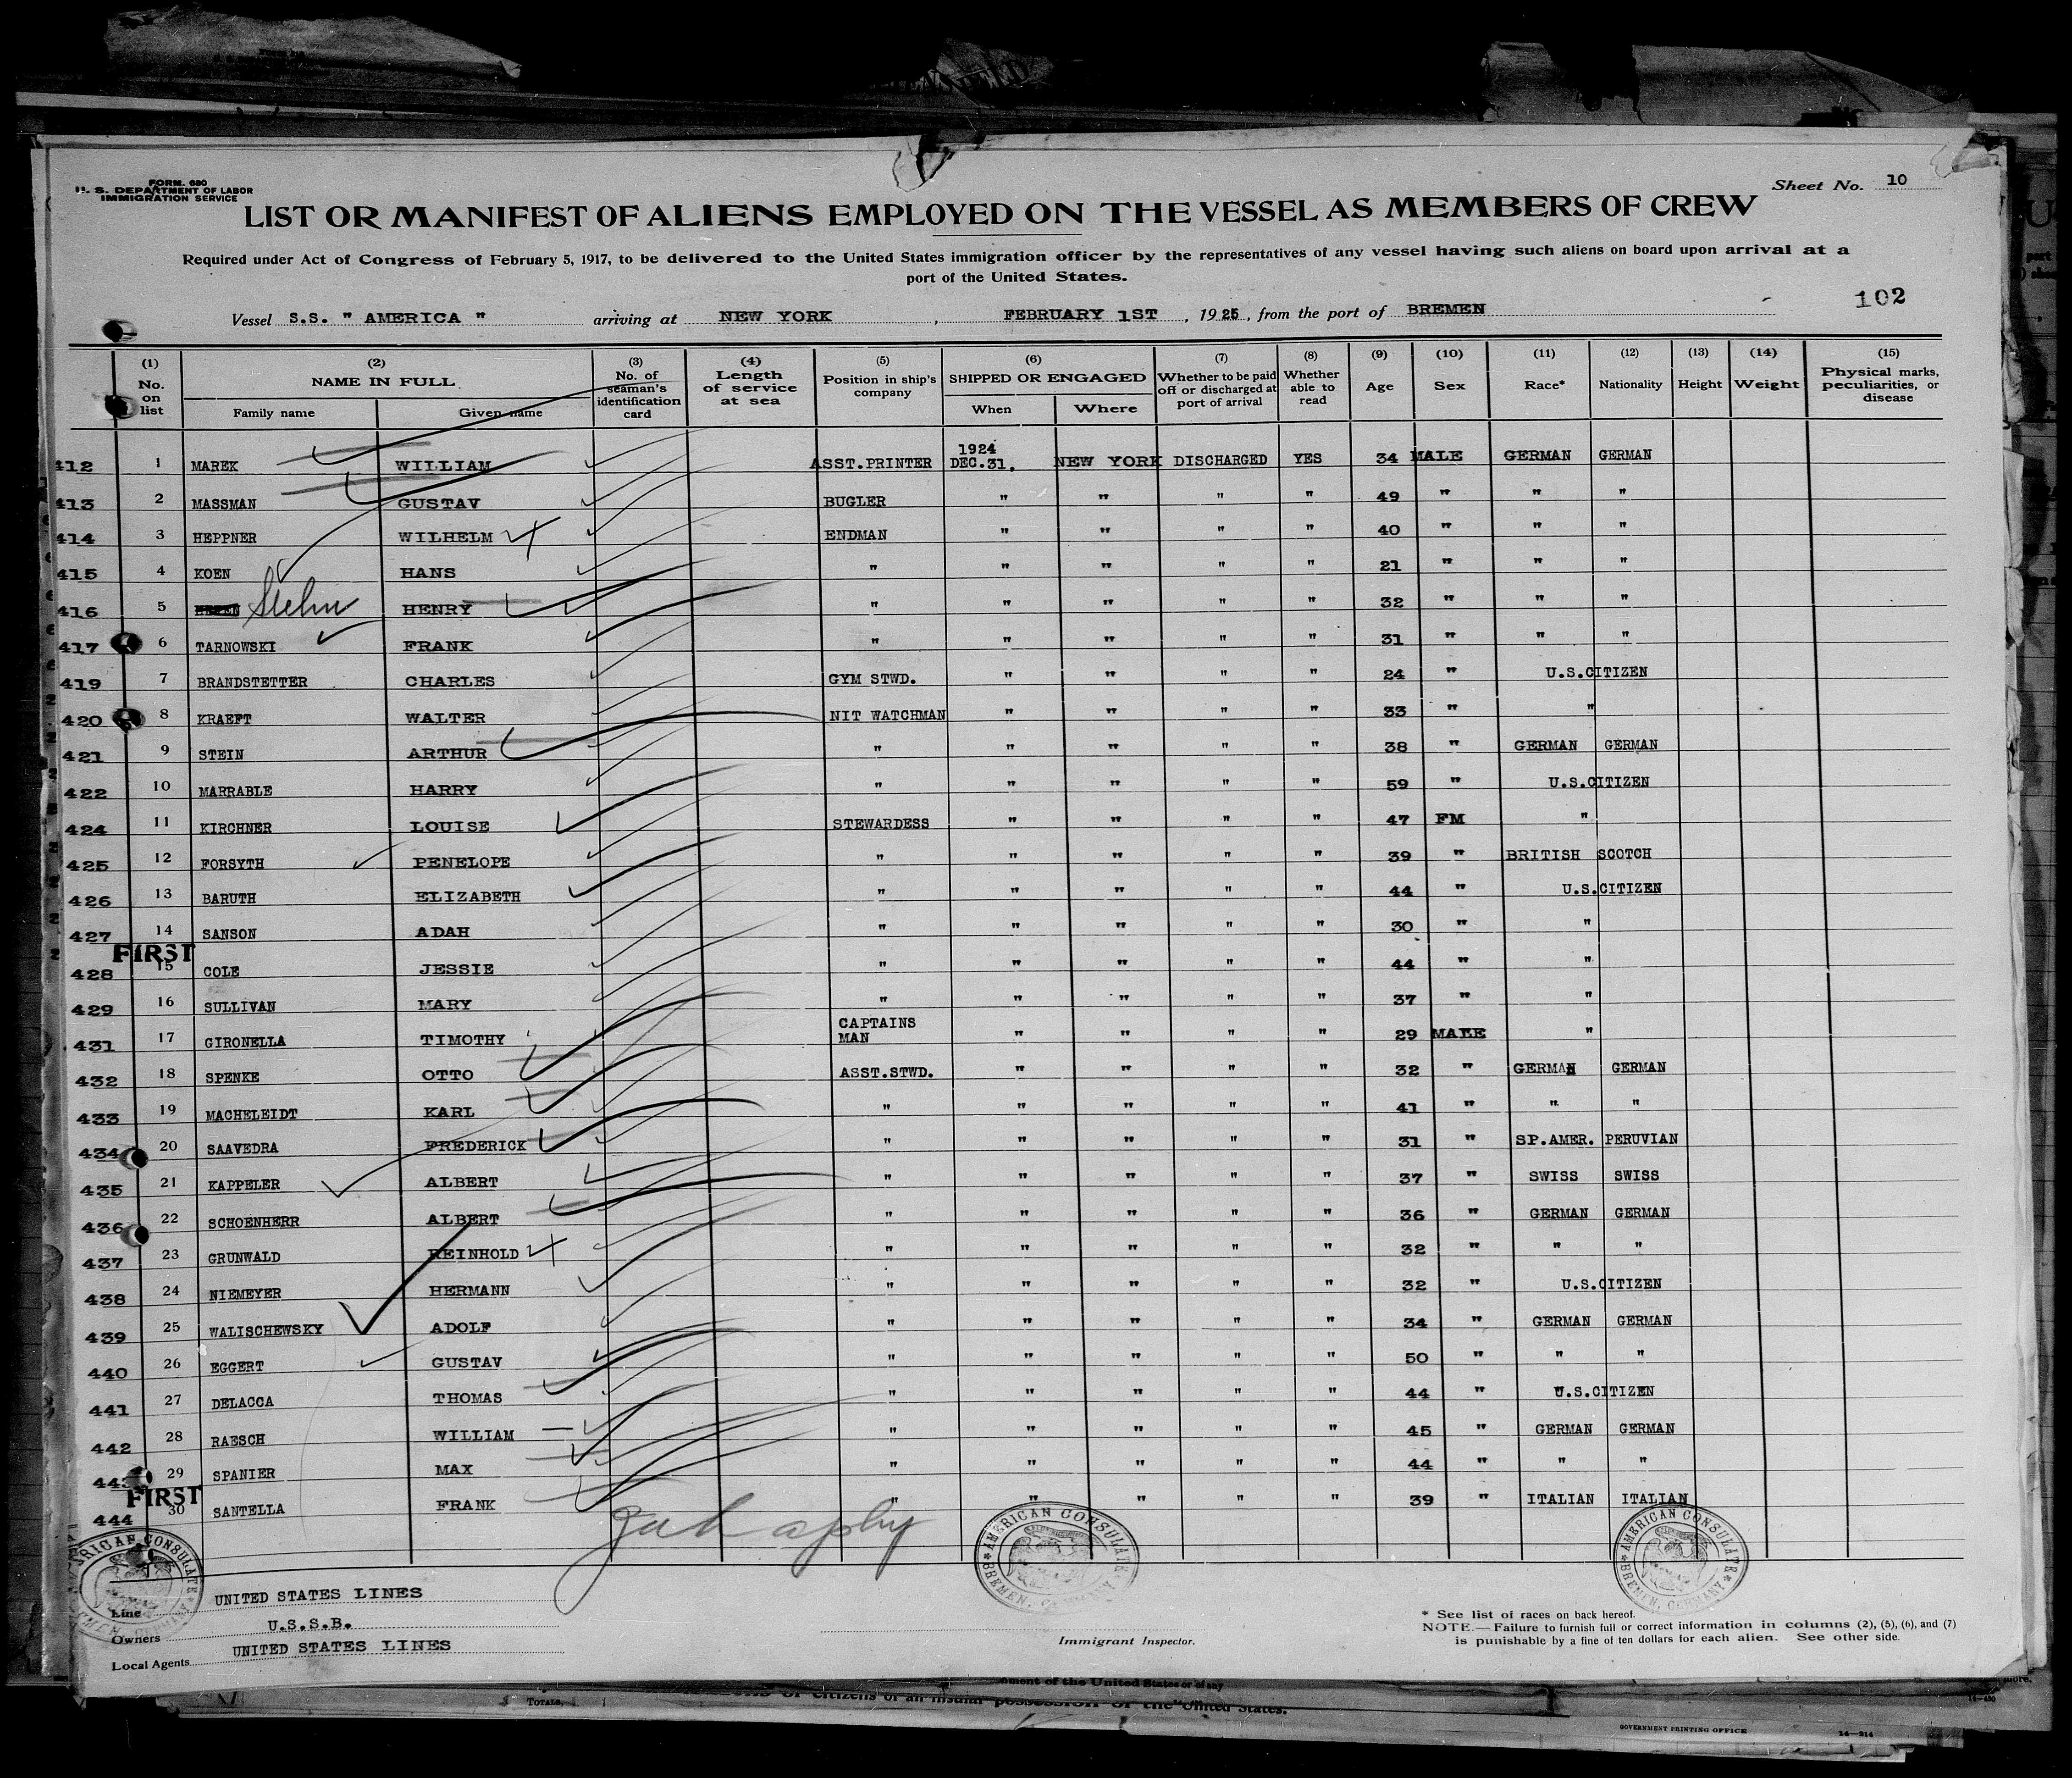 FORM. 680
U. S. DEPARTMENT OF LABOR
IMMIGRATION SERVICE
Sheet No. 10
LIST OR MANIFEST OF ALIENS EMPLOYED ON THE VESSEL AS MEMBERS OF CREW
Required under Act of Congress of February 5, 1917, to be delivered to the United States immigration officer by the representatives of any vessel having such aliens on board upon arrival at a
port of the United States.
102
Vessel S.S. " AMERICA " arriving at NEW YORK , FEBRUARY 1ST , 1925, from the port of BREMEN
(1) (2) (3) (4) (5) (6) (7) (8) (9) (10) (11) (12) (13) (14) (15)
No. on list NAME IN FULL Family name Given name No. of seaman's identification card Length of service at sea Position in ship's company SHIPPED OR ENGAGED When Where Whether to be paid off or discharged at port of arrival Whether able to read Age Sex Race* Nationality Height Weight Physical marks, peculiarities, or disease
412 1 MAREK WILLIAM ASST.PRINTER 1924 DEC.31. NEW YORK DISCHARGED YES 34 MALE GERMAN GERMAN
413 2 MASSMAN GUSTAV BUGLER " " " " 49 " " "
414 3 HEPPNER WILHELM ENDMAN " " " " 40 " " "
415 4 KOEN HANS " " " " " 21 " " "
416 5 Stehn HENRY " " " " " 32 " " "
417 6 TARNOWSKI FRANK " " " " " 31 " " "
419 7 BRANDSTETTER CHARLES GYM STWD. " " " " 24 " U.S.CITIZEN
420 8 KRAEFT WALTER NIT WATCHMAN " " " " 33 " "
421 9 STEIN ARTHUR " " " " " 38 " GERMAN GERMAN
422 10 MARRABLE HARRY " " " " " 59 " U.S.CITIZEN
424 11 KIRCHNER LOUISE STEWARDESS " " " " 47 FM "
425 12 FORSYTH PENELOPE " " " " " 39 " BRITISH SCOTCH
426 13 BARUTH ELIZABETH " " " " " 44 " U.S.CITIZEN
427 14 SANSON ADAH " " " " " 30 " "
FIRST
428 15 COLE JESSIE " " " " " 44 " "
429 16 SULLIVAN MARY " " " " " 37 " "
431 17 GIRONELLA TIMOTHY CAPTAINS MAN " " " " 29 MALE "
432 18 SPENKE OTTO ASST.STWD. " " " " 32 " GERMAN GERMAN
433 19 MACHELEIDT KARL " " " " " 41 " " "
434 20 SAAVEDRA FREDERICK " " " " " 31 " SP.AMER. PERUVIAN
435 21 KAPPELER ALBERT " " " " " 37 " SWISS SWISS
436 22 SCHOENHERR ALBERT " " " " " 36 " GERMAN GERMAN
437 23 GRUNWALD REINHOLD " " " " " 32 " " "
438 24 NIEMEYER HERMANN " " " " " 32 " U.S.CITIZEN
439 25 WALISCHEWSKY ADOLF " " " " " 34 " GERMAN GERMAN
440 26 EGGERT GUSTAV " " " " " 50 " " "
441 27 DELACCA THOMAS " " " " " 44 " U.S.CITIZEN
442 28 RAESCH WILLIAM " " " " " 45 " GERMAN GERMAN
443 29 SPANIER MAX " " " " " 44 " " "
FIRST
444 30 SANTELLA FRANK " " " " " 39 " ITALIAN ITALIAN
AMERICAN CONSULATE
BREMEN, GERMANY
AMERICAN CONSULATE
BREMEN, GERMANY
AMERICAN CONSULATE
BREMEN, GERMANY
Line UNITED STATES LINES
Owners U.S.S.B.
Local Agents UNITED STATES LINES
Immigrant Inspector.
* See list of races on back hereof.
NOTE.—Failure to furnish full or correct information in columns (2), (5), (6), and (7)
is punishable by a fine of ten dollars for each alien. See other side.
TOTALS,
citizens of an insular possession of the United States.
GOVERNMENT PRINTING OFFICE
14—214